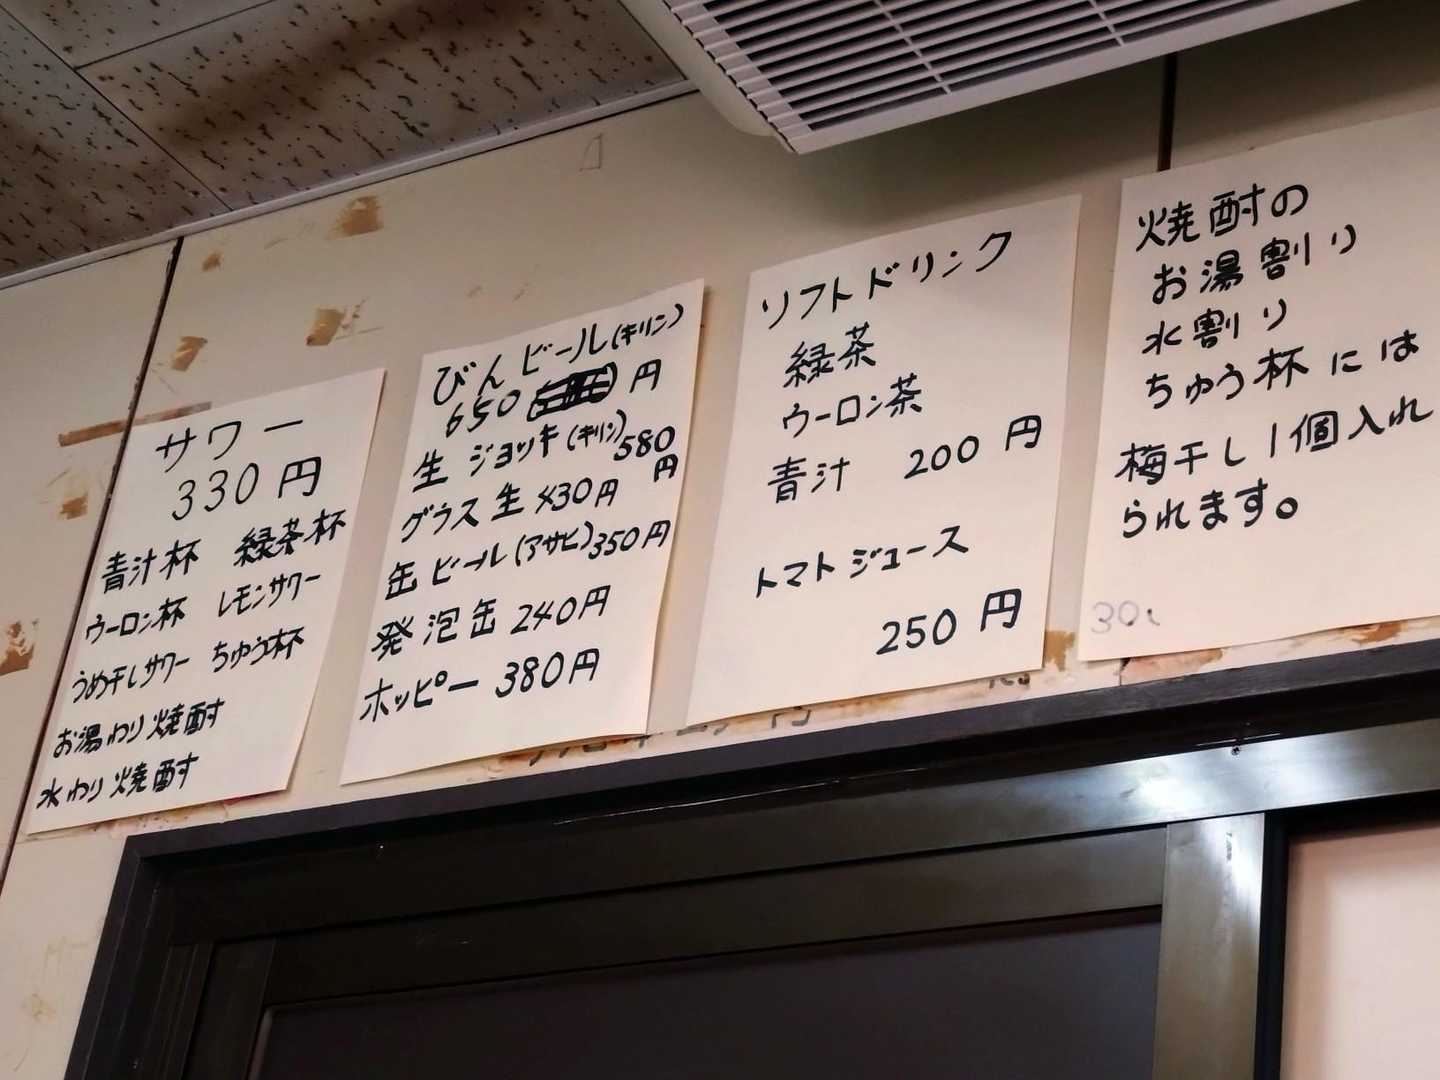 サワー
330円
青汁杯 緑茶杯
ウーロン杯 レモンサワー
うめ干しサワー ちゅう杯
お湯わり焼酎
水わり焼酎
びんビール(キリン)
650 円
生 ジョッキ(キリン)580円
グラス生 430円
缶ビール(アサヒ)350円
発泡缶 240円
ホッピー 380円
ソフトドリンク
緑茶
ウーロン茶
青汁 200円
トマトジュース
250円
焼酎の
お湯割り
水割り
ちゅう杯には
梅干し1個入れ
られます。